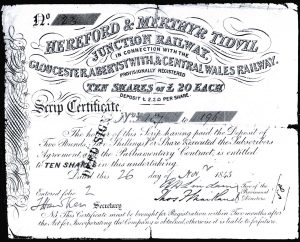 No.
HEREFORD & MERTHYR TIDVIL
JUNCTION RAILWAY,
IN CONNECTION WITH THE
GLOUCESTER, ABERYSTWITH, & CENTRAL WALES RAILWAY.
PROVISIONALLY REGISTERED
TEN SHARES OF £20 EACH
DEPOSIT £2.2.0 PER SHARE
Scrip Certificate.
The holder of this Scrip having paid the Deposit of
Two Pounds, Two Shillings Per Share & executed the Subscribers
Agreement and the Parliamentary Contract, is entitled
to TEN SHARES in this undertaking
Dated this 26 day of Nov 1845
Entered folio 2
Secretary
Two of the
Directors
NB. This Certificate must be brought for Registration within Two months after
the Act for Incorporating the Company is obtained, otherwise it is liable to forfeiture